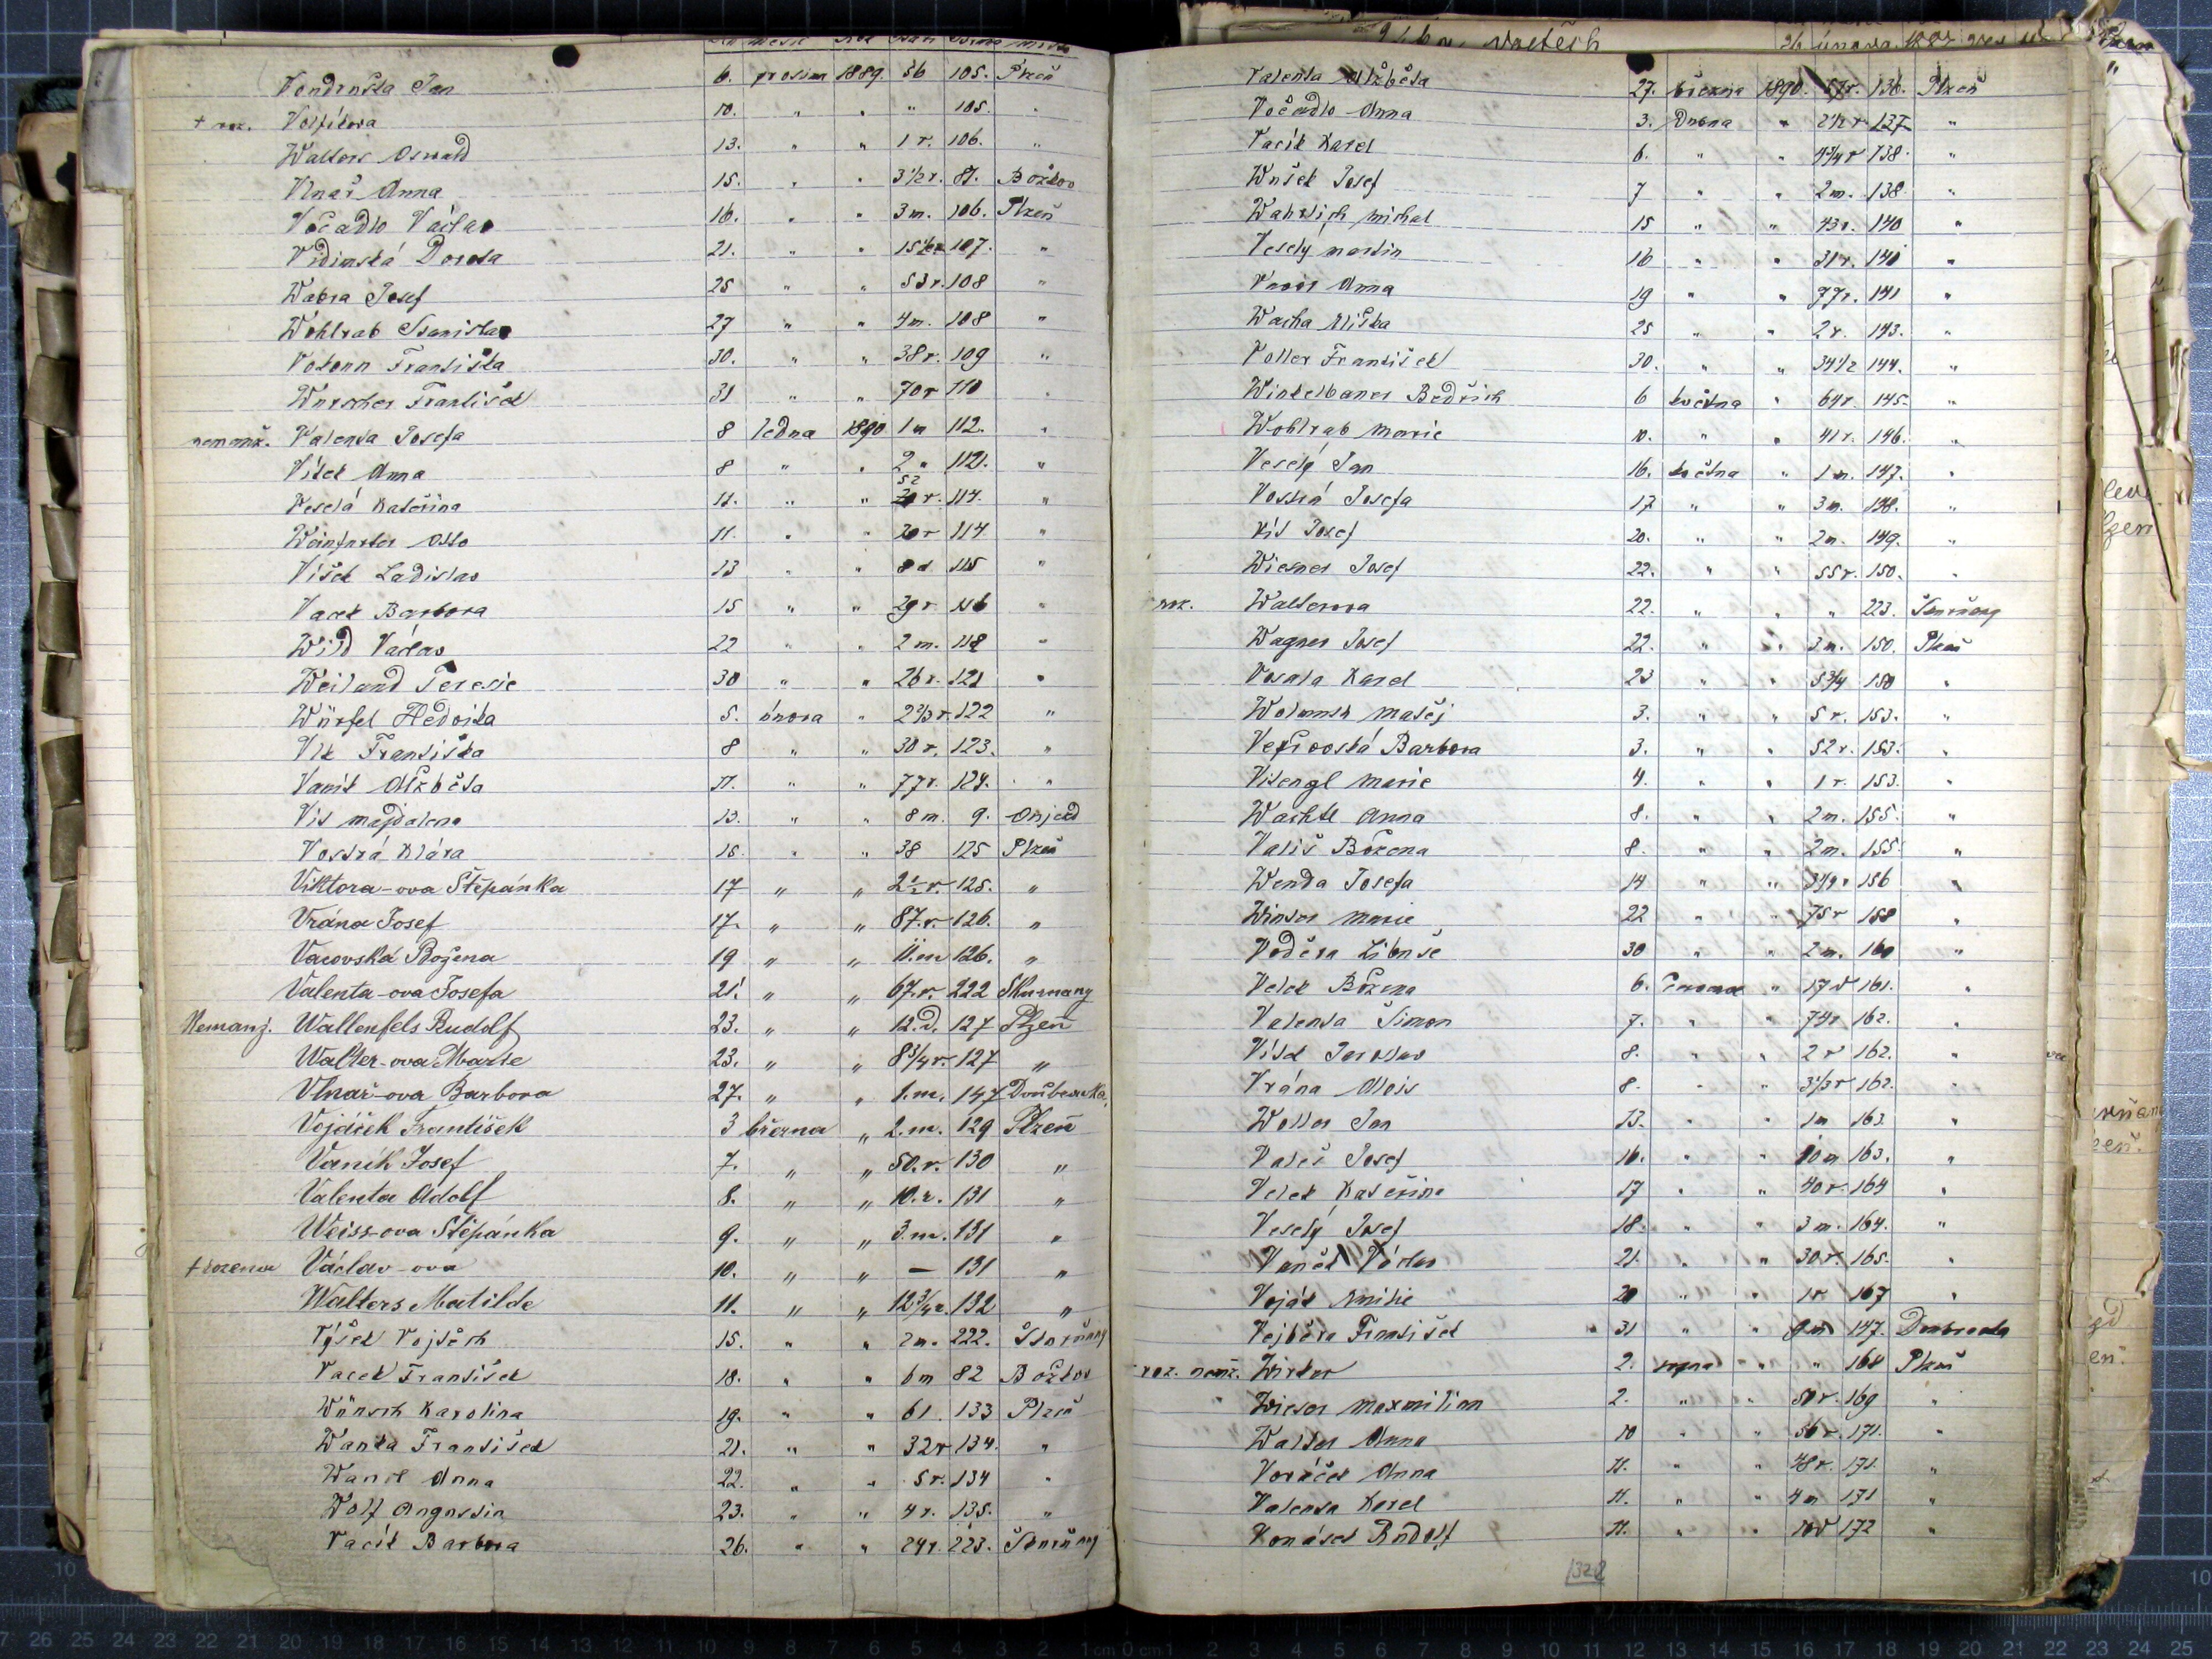 Vondruška Jan 6. prosince 1889 56 105. Plzeň
+ roz. Volfíkova 10. " " " 105. "
Walters Oswald 13. " " 1 r. 106. "
Vlnař Anna 15. " " 3½ r. 81. Božkov
Vočadlo Václav 16. " " 3 m. 106. Plzeň
Vidimská Dorota 21. " " 107. "
Wabra Josef 25 " " 53 r. 108 "
Wohlrab Stanislav 27 " " 4 m. 108 "
Votoun Františka 30. " " 38 r. 109 "
Wurscher František 31 " " 70 r 110 "
nemanž. Valenta Josefa 8 ledna 1890 1 m 112. "
Vítek Anna 8 " " 2 " 112. "
Veselá Kateřina 11. " " 52 r. 114. "
Weinfurter Otto 11. " " 20 r 114 "
Víšek Ladislav 13 " " 8 d 115 "
Vacek Barbora 15 " " 29 r 116 "
Wild Václav 22 " " 2 m. 118 "
Weiland Teresie 30 " " 26 r. 121 "
Würfel Hedvika 5. února " 2⅔ r. 122 "
Vlk Františka 8 " " 30 r. 123. "
Vaník Alžběta 11. " " 77 r. 124. "
Vít Majdalena 13. " " 8 m. 9. Oujezd
Vostrá Klára 16. " " 38 125 Plzeň
Viktora-ova Štěpánka 17 " " 2½ r. 125. "
Vrána Josef 17. " " 87. r. 126. "
Vacovská Božena 19 " " 11. m 126. "
Valenta-ova Josefa 21. " " 67. r. 222 Skurnany
Nemanž. Wallenfels Rudolf 23. " " 12. d. 127 Plzeň
Walter-ova Marie 23. " " 8¾ r. 127 "
Vlnař-ova Barbora 27. " " 1. m. 147 Doubravka.
Vojáček František 3 března " 2. m. 129 Plzeň
Vaník Josef 7. " " 50. r. 130 "
Valenta Adolf 8. " " 10. r. 131 "
Weiss-ova Štěpánka 9. " " 3. m. 131 "
+ rozena Václav-ova 10. " " — 131 "
Walters Matilde 11. " " 12¾ r. 132 "
Výšek Vojtěch 15. " " 2 m. 222. Skurňany
Vacek František 18. " " 6 m 82 Božkov
Wünsch Karolina 19. " " 61. 133 Plzeň
Waňka František 21. " " 32 r 134. "
Anna 22. " " 5 r. 134 "
Wolf Augustin 23. " " 4 r. 135. "
Vacík Barbora 26. " " 24 r. 223. Skurňany
Valenta Alžběta 27. března 1890. 57 r. 136. Plzeň
Vočadlo Anna 3. Dubna " 2½ r 137 "
Vacík Karel 6. " " 4¾ r 138. "
Josef 7 " " 2 m. 138. "
Wahrlich Michal 15 " " 43 r. 140 "
Veselý Martin 16 " " 31 r. 140 "
Anna 19 " " 77 r. 141 "
Wacha Eliška 25 " " 2 r. 143. "
Voller František 30. " " 34½ 144. "
Winkelbauer Bedřich 6 května " 64 r. 145. "
Wohlrab Marie 10. " " 41 r. 146. "
Veselý Jan 16. května " 1 m. 147. "
Vostrá Josefa 17 " " 3 m. 148. "
Vít Josef 20. " " 2 m. 149. "
Wiesner Josef 22. " " 55 r. 150. "
roz. Walterova 22. " " " 223. Skurňany
Wagner Josef 22. " " 3 m. 150. Plzeň
Vosala Karel 23 " " 5¾ 150 "
Matěj 3. " " 5 r. 153. "
Barbora 3. " " 52 r. 153. "
Vitengl Marie 4. " " 1 r. 153. "
Wachtl Anna 8. " " 2 m. 155. "
Vališ Božena 8. " " 2 m. 155 "
Wenda Josefa 14 " " 156 "
Winter Marie 22 " " 75 r 158 "
Voděra Libuše 30 " " 2 m. 160 "
Velek Božena 6. " 17 d 161. "
Valenta Šimon 7. " " 74 r 162. "
Vítek Jaroslav 8. " " 2 r 162. "
Vrána Alois 8. " " 3½ r 162. "
Woller Jan 13. " " 1 m 163. "
Valeš Josef 16. " " 10 m 163. "
Velek Kateřina 17 " " 40 r. 164 "
Veselý Josef 18. " " 3 m. 164. "
Vaněk Václav 21. " " 30 r. 165. "
Voják Emilie 20 " " 1 r 167 "
Vejběra František 31 " " 147. Doubravka
roz. nemž. 2. srpna " " 168 Plzeň
Wieser Maxmilian 2. " " 50 r. 169 "
Walter Anna 10 " " 56 r. 171. "
Voráček Anna 11. " " 48 r. 171. "
Valenta Karel 11. " " 4 m 171 "
Vonásek Rudolf 11. " " 10 d 172 "
1322